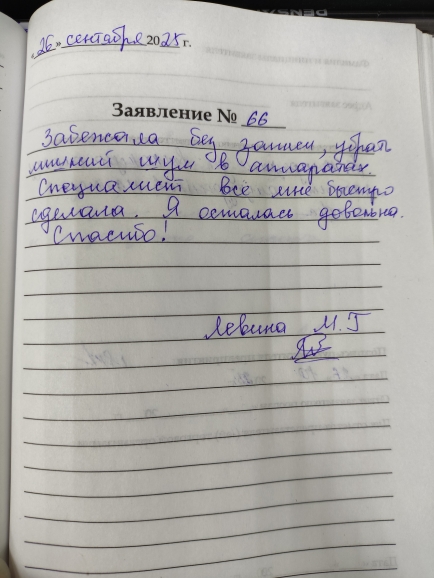 „26" сентября 2025 г.
Заявление № 66
Забежала без записи, убрать
лишний шум в аппаратах.
Специалист всё мне быстро
сделала. Я осталась довольна.
Спасибо!
Левина М.Г